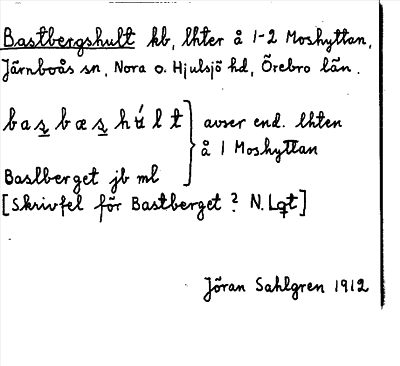 Bastbergshult kb, lhter å 1-2 Moshyttan,
Järnboås sn, Nora o. Hjulsjö hd, Örebro län.
bas̲bæs̲húlt } avser end. lhten
å 1 Moshyttan
Baslberget jb ml
[Skrivfel för Bastberget? N. Lqt]
Jöran Sahlgren 1912